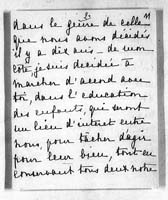 2 11
dans le genre de celle
que nous avons décidés
il y a dix ans - de mon
côté je suis décidée à
marcher d'accord avec
toi, dans l'éducation
des enfants, qui sont
un lien d'intérêt entre
nous, pour tâcher d'agir
pour leur bien, tout en
conservant tous deux notre